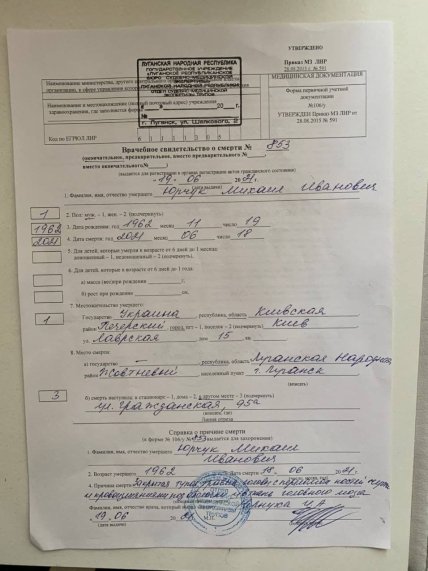 УТВЕРЖДЕНО
Приказ МЗ ЛНР
28.08.2015 г. № 591
МЕДИЦИНСКАЯ ДОКУМЕНТАЦИЯ
Форма первичной учетной
документации
№106/у
УТВЕРЖДЕН Приказ МЗ ЛНР от
28.08.2015 № 591
ЛУГАНСКАЯ НАРОДНАЯ РЕСПУБЛИКА
ГОСУДАРСТВЕННОЕ УЧРЕЖДЕНИЕ
«ЛУГАНСКОЕ РЕСПУБЛИКАНСКОЕ
БЮРО СУДЕБНО-МЕДИЦИНСКОЙ
ЛУГАНСКОЙ НАРОДНОЙ РЕСПУБЛИКИ
ОТДЕЛ СУДЕБНО-МЕДИЦИНСКОЙ
ЭКСПЕРТИЗЫ ТРУПОВ
№
20 г.
г. Луганск, ул. Шелкового, 2
Наименование министерства, другого
Наименование и местонахождение (полный почтовый адрес) учреждения
здравоохранения, где заполняется
Код по ЕГРЮЛ ЛНР
Врачебное свидетельство о смерти № 853
(окончательное, предварительное, вместо предварительного №
вместо окончательного №
(выдается для регистрации в органы регистрации актов гражданского состояния)
19. 06 2021
(дата выдачи)
1. Фамилия, имя, отчество умершего Юрчук Михаил Иванович
1 2. Пол: муж. - 1, жен. - 2 (подчеркнуть)
1962 3. Дата рождения: год 1962 месяц 11 число 19
2021 4. Дата смерти: год 2021 месяц 06 число 18
5. Для детей, которые умерли в возрасте от 6 дней до 1 месяца:
доношенный - 1, недоношенный - 2 (подчеркнуть).
6. Для детей, которые в возрасте от 6 дней до 1 года
а) масса при рождении г.
б) рост при рождении см.
7. Местожительство умершего:
1 Государство Украина республика, область Киевская
район Печерский город, пгт - 1, поселок - 2 (подчеркнуть) Киев
ул. Лаврская дом 15 кв.
8. Место смерти:
а) государство — республика, область Луганская Народная
район Жовтневый населенный пункт г. Луганск
(вписать)
3 б) смерть наступила: в стационаре – 1, дома – 2, в другом месте - 3 (подчеркнуть)
ул. Гражданская, 95а
(вписать, где)
Линия отреза
Справка о причине смерти
(к форме № 106/у № 853 выдается для захоронения)
1. Фамилия, имя, отчество умершего Юрчук Михаил
Иванович
2. Возраст умершего 1962 Дата смерти 18. 06 2021.
4. Причина смерти Закрытая тупая травма головы с переломами костей черепа
и кровоизлияниями под оболочки головного мозга
Фамилия, имя, отчество врача, который выдал
19. 06 2021
(дата выдачи)
М.П.